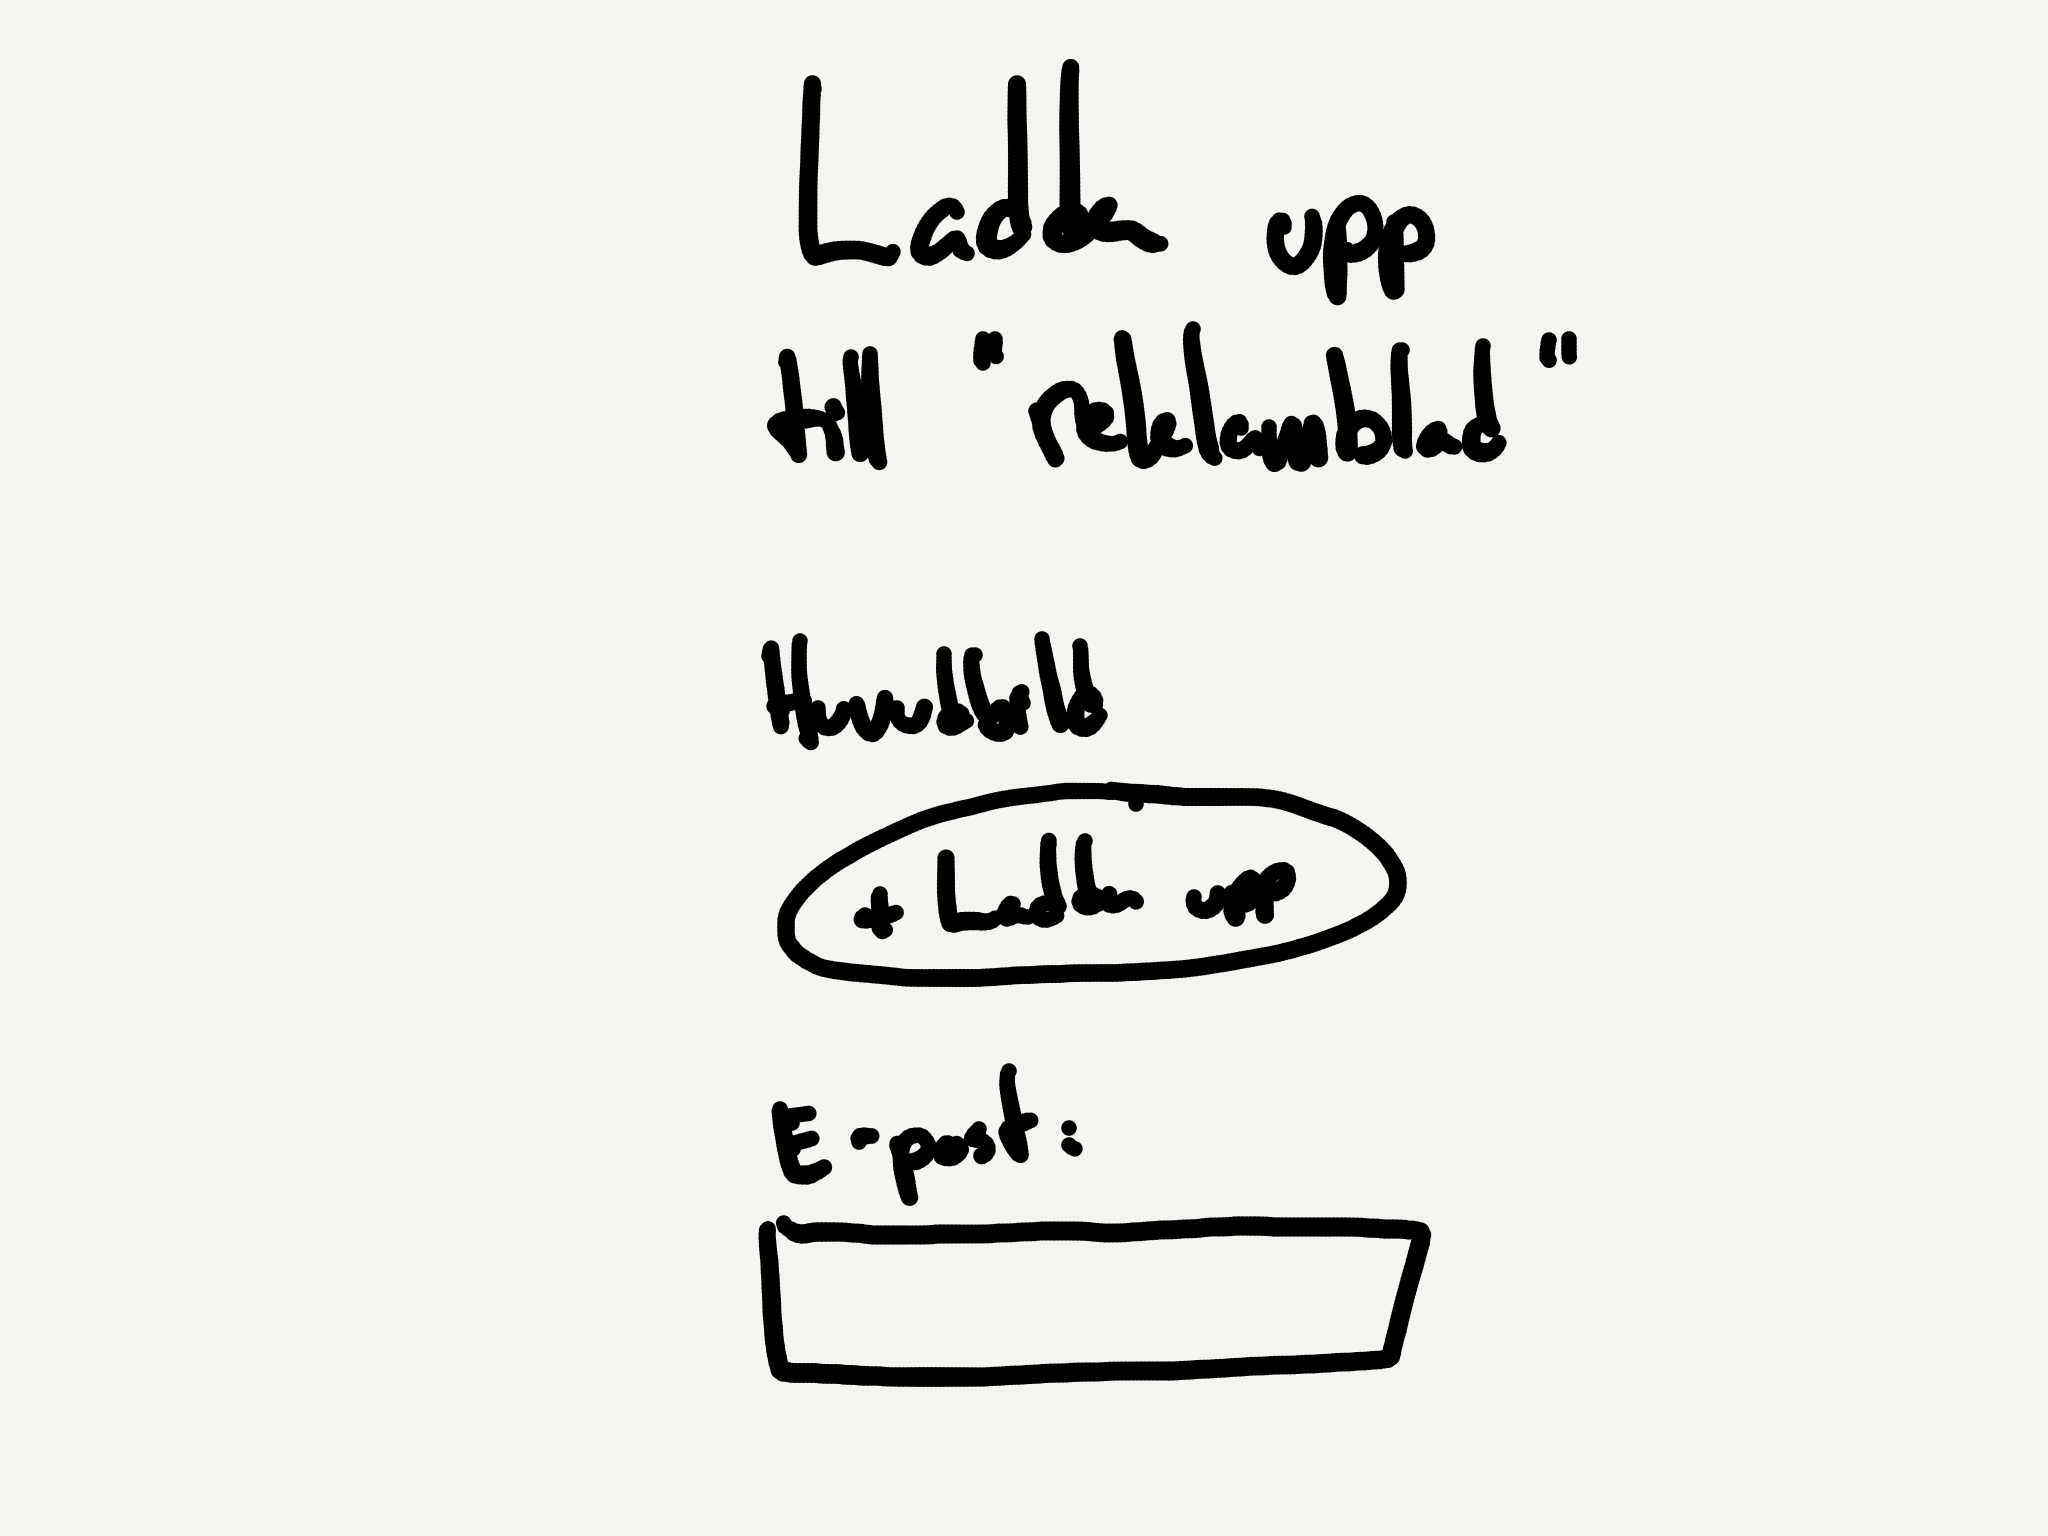 Ladda upp
till "reklamblad"
Huvudbild
+ Ladda upp
E-post: